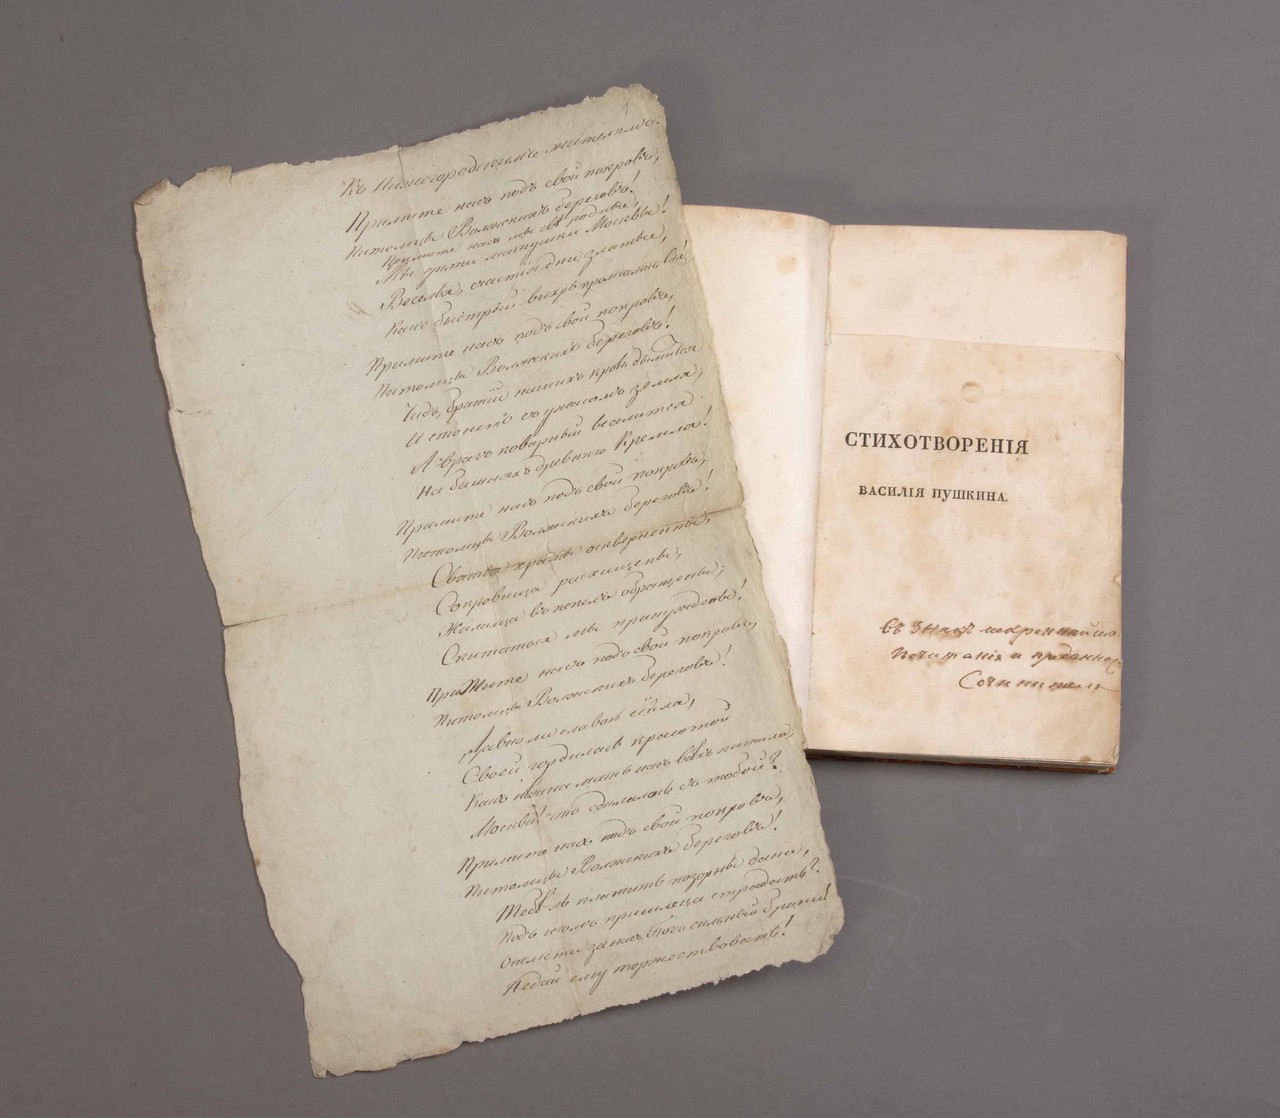 Къ Нижегородскимъ жителямъ.
Примите насъ подъ свой покровъ,
Питомцы Волжскихъ береговъ!
Примите насъ мы всѣ родные,
Мы дѣти матушки Москвы!
Веселья, счастья дни златые,
Какъ быстрый вихрь промчались вы!
Примите насъ подъ свой покровъ,
Питомцы Волжскихъ береговъ!
Чадъ, братій нашихъ кровь дымится
И стонетъ съ ужасомъ земля;
А врагъ коварный веселится
На башняхъ древняго Кремля!
Примите насъ подъ свой покровъ,
Питомцы Волжскихъ береговъ!
Святые храмы осквернены,
Сокровища расхищены,
Жилища въ пепелъ обращены;
Скитаться мы принуждены!
Примите насъ подъ свой покровъ,
Питомцы Волжскихъ береговъ!
Давно ли славой сіяла,
Своей гордилась красотой
Какъ нѣжна мать насъ всѣхъ питала;
Москва! что сдѣлалось съ тобой?
Примите насъ подъ свой покровъ,
Питомцы Волжскихъ береговъ!
Тебѣ ль платить позорны дани,
Подъ игомъ пришлеца страдать?
Отмсти за насъ, Богъ сильный брани!
Недай ему торжествовать!
СТИХОТВОРЕНІЯ
ВАСИЛІЯ ПУШКИНА.
Въ знакъ искреннѣйша
почитанія и преданнос
Сочинитель